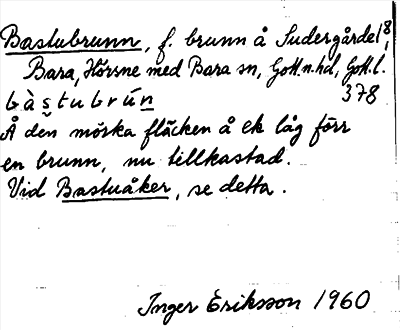 Bastubrunn, f. brunn å Sudergårde 1⁸,
Bara, Hörsne med Bara sn, Gotl.n.hd, Gotl.l.
378
bàstubrún
Å den mörka fläcken å ek låg förr
en brunn, nu tillkastad.
Vid Bastuåker, se detta.
Inger Eriksson 1960